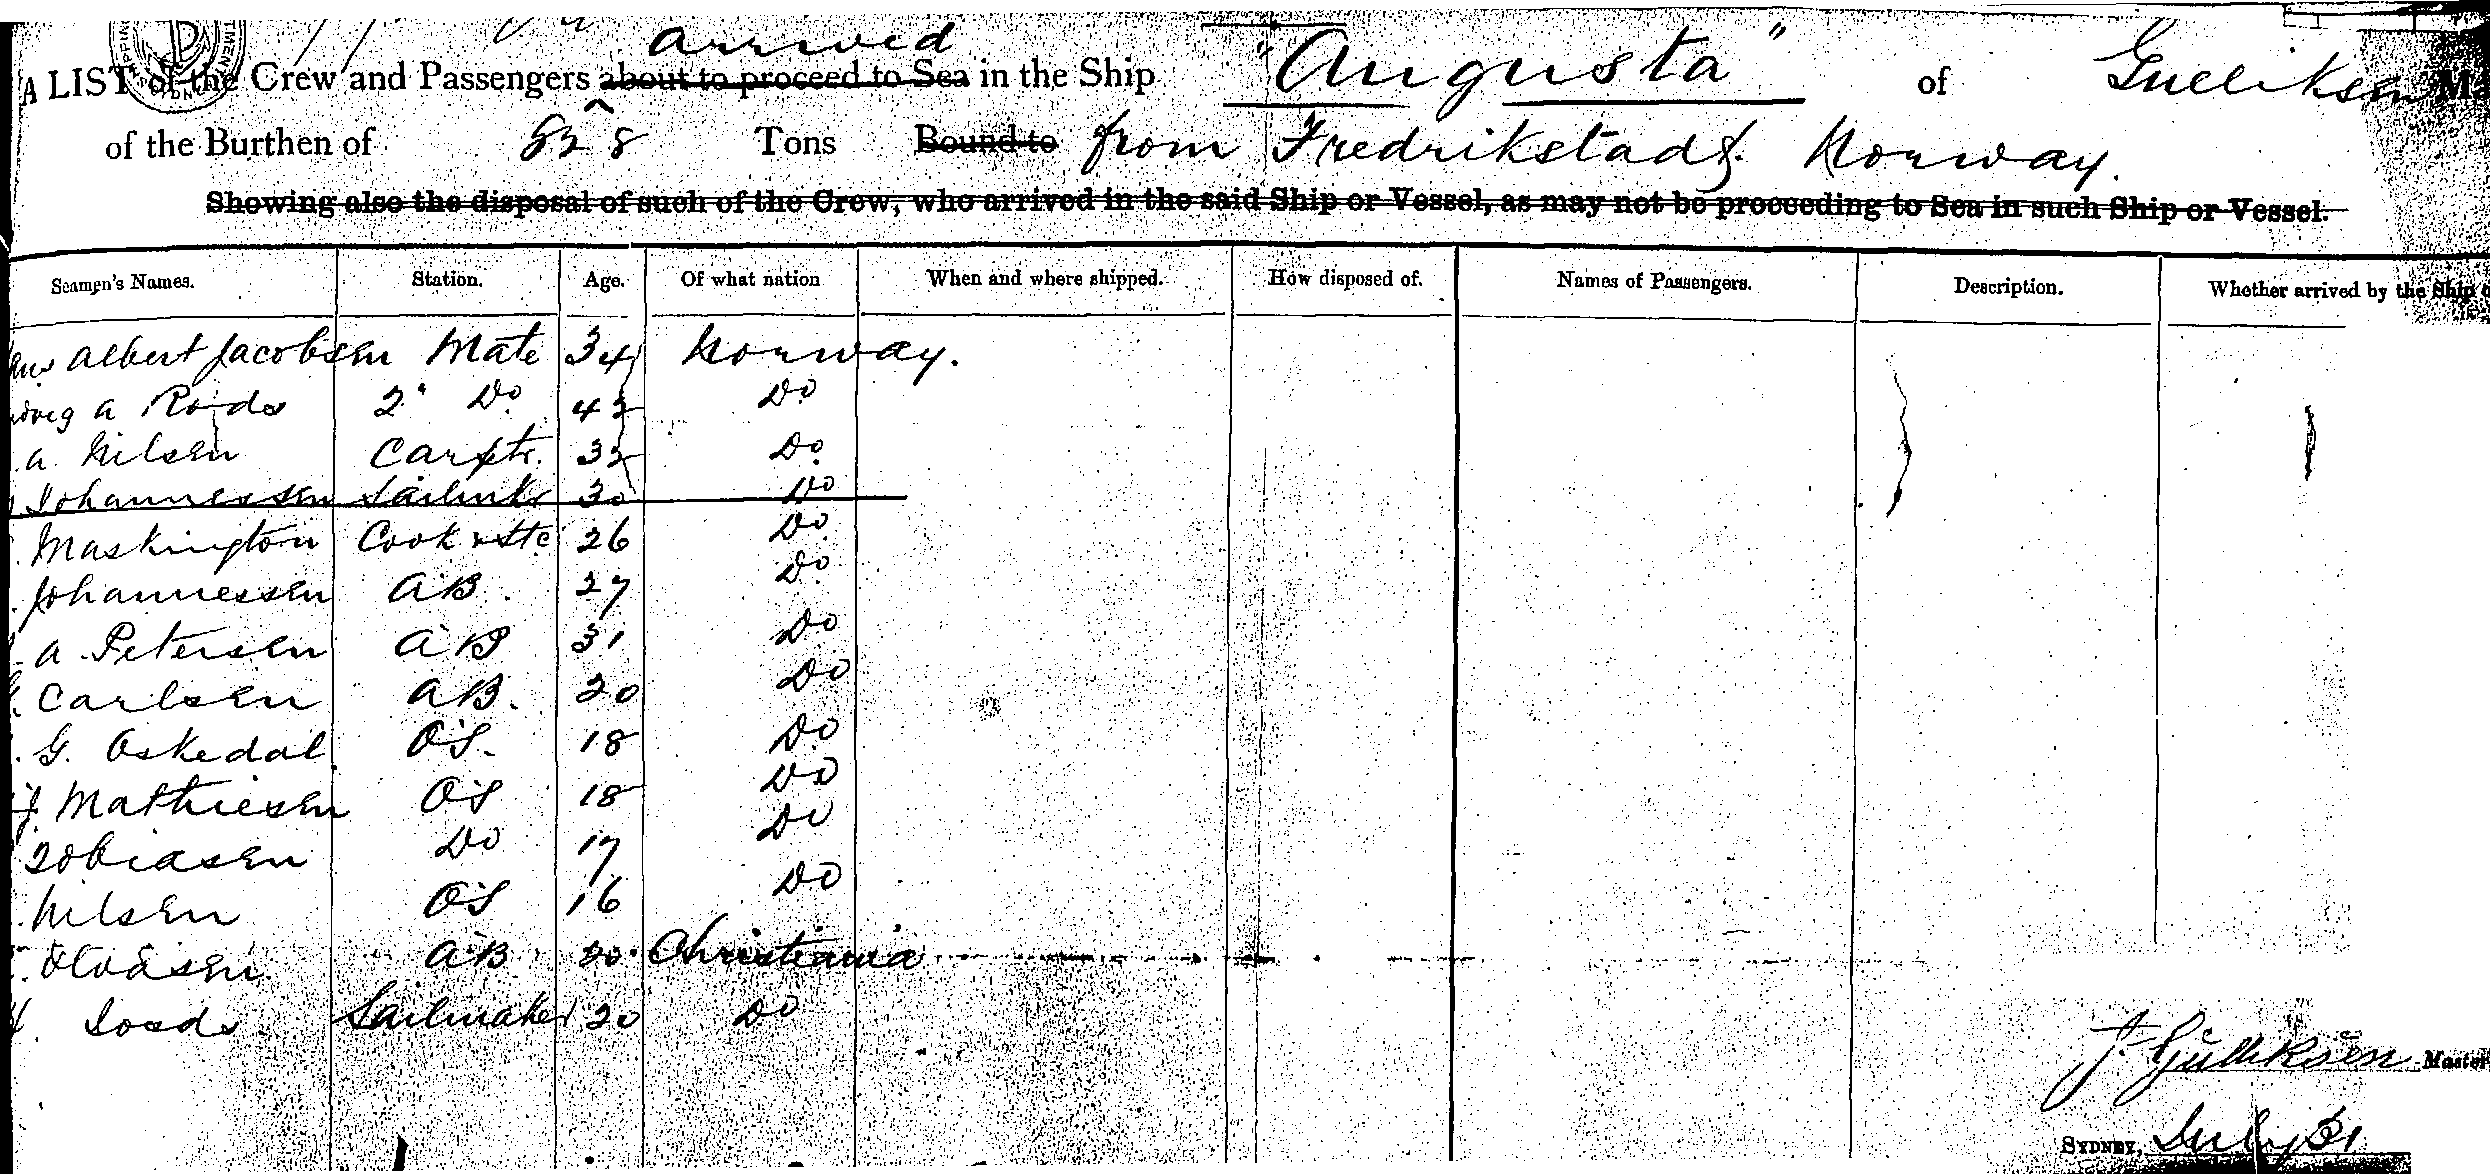 arrived
A LIST of the Crew and Passengers about to proceed to Sea in the Ship "Augusta" of Gulliksen
of the Burthen of 828 Tons Bound to from Fredrikstadt. Norway.
Showing also the disposal of such of the Crew, who arrived in the said Ship or Vessel, as may not be proceeding to Sea in such Ship or Vessel.
Seamen's Names. Station. Age. Of what nation When and where shipped. How disposed of. Names of Passengers. Description. Whether arrived by the Ship
Albert Jacobsen Mate 34 Norway.
a 2" Do 43 Do
a. Nilsen Carptr. 33 Do
Johannessen Sailmkr 30 Do
Maskington Cook & Ste 26 Do
Johannessen AB. 27 Do
a. Petersen AB 31 Do
Carlsen AB. 20 Do
G. Oskedal OS. 18 Do
J. Mathiesen OS 18 Do
Tobiasen Do 17 Do
Nilsen OS 16 Do
AB 20. Christiania
Sailmaker 20 Do
J. Gulliksen Master
SYDNEY, July 31